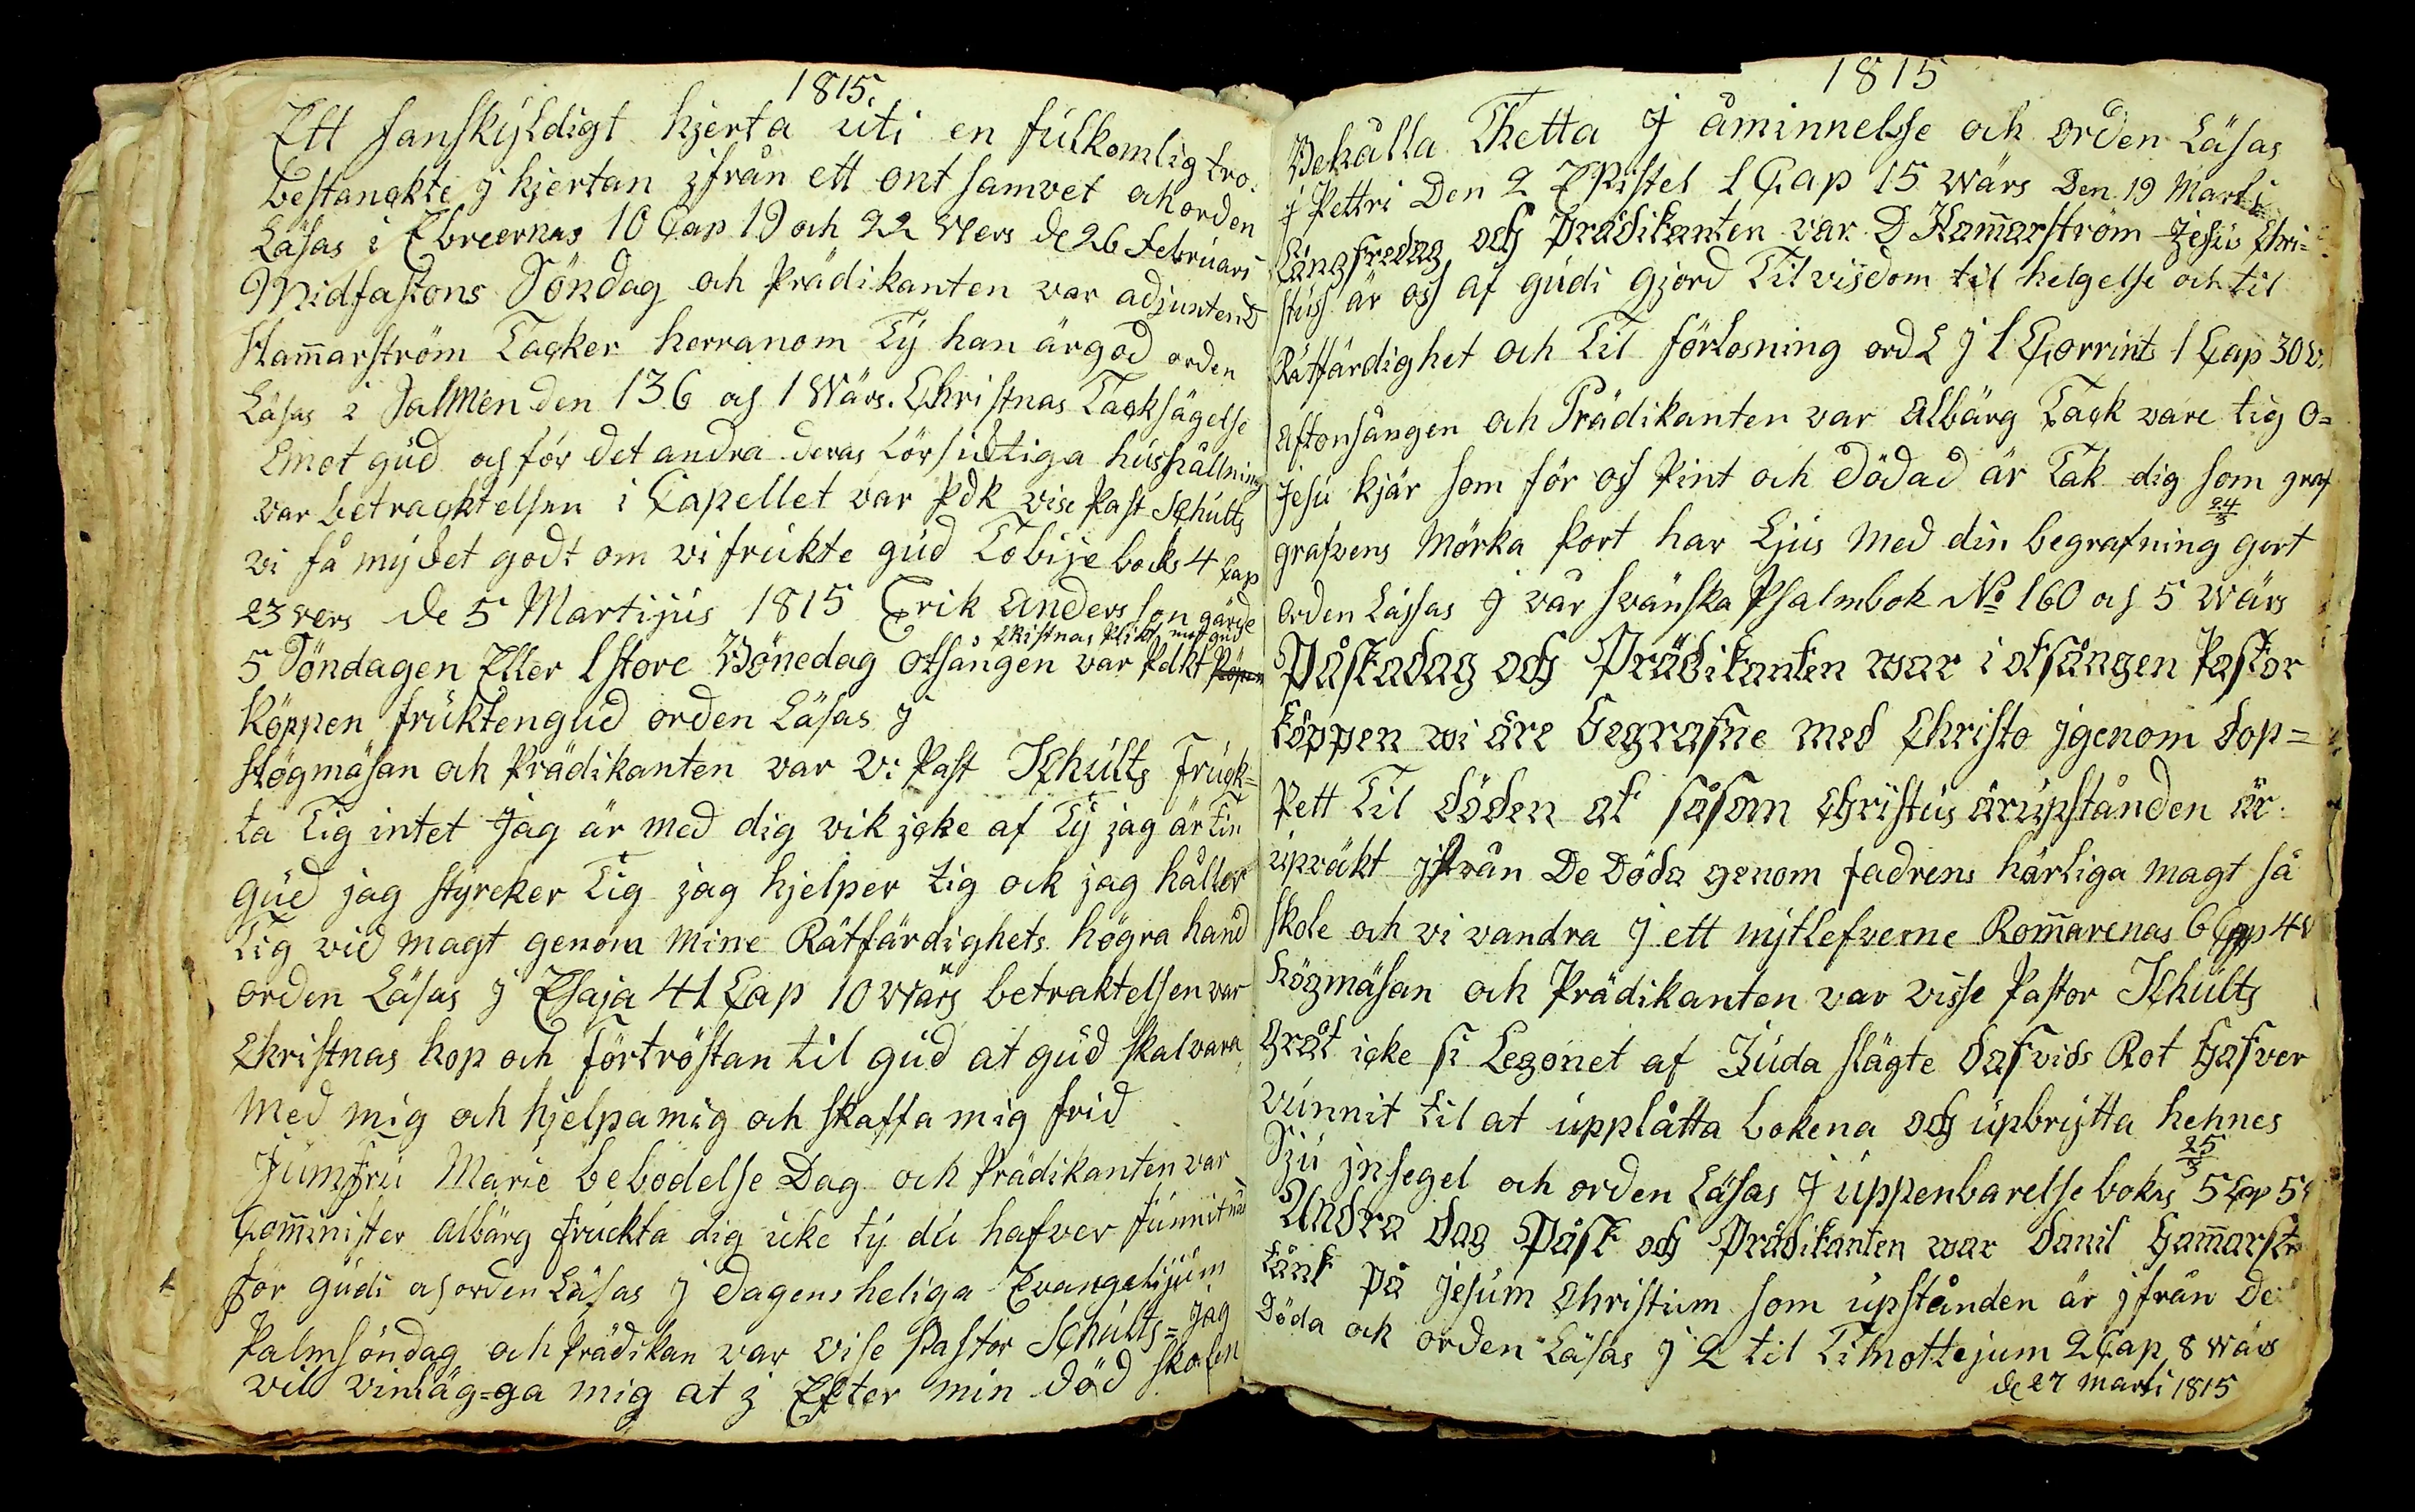 1815.
Ett sanskÿldigt hjerta uti en fulkomlig tro.
bestänckte j hjertan jfrån ett ont samvet och orden
Läsas i Ebreernas 10 Cap 19 och 22 vers de 26 februari
Midfastons Söndag och Prädikanten var adjuntend
Ham̄arström Tacker herranom Tÿ han är god orden
Läsas i Salmen den 136 och 1 Wärs. Christnas Tacksägelse
Emot gud och för det andra deras Försicktiga hushållning
var betracktelsen i Capellet var Pdk vise Past Schults
vi få mÿcket godt om vi frukte gud Tobije boks 4 Cap
23 vers de 5 Martijus 1815 Erik Andersson gärde
Christnas Plikt mot gud
5 Söndagen Eller 1 store Bönedag otsången var Pdkt Köpen
Köppen frukten gud orden Läsas j
Högmäsan och Prädikanten var Vi Past Schults Fruck=
ta Tig intet Jag är med dig vik jcke af Tÿ jag är Tin
gud jag stÿreker Tig jag hjelper tig ock jag håller
Tig vid magt genom mine Rätfärdighets högra hand
orden Läsas j Esaja 41 Cap 10 Wärs betraktelsen var
Christnas hop och förtröstan til gud at gud skal vara
Med mig och hjelpa mig och skaffa mig frid
Jumfru Marie bebodelse Dag och Prädikanten var
Com̄inister Albärg fruckta dig icke tÿ du hafver funnit nåd
för gudi och orden Läsas j dagens heliga Evangelijum
Palmsöndag och Prädikan var vise Pastor Schults = jag
vil vinläg=ga mig at j Efter min död skolen
1815
Behålla Thetta J åminnelsse och orden Läsas
j Pettri Den 2 EPistel 1 Cap 15 Wärs Den 19 Marti
Långfredag och Prädikanten var D Ham̄arström Jesus Chri=
stuss är oss af gudi gjord Til visdom til helgelse och til
Rätfärdighet och Til förlosning ord L j 1 Corrints 1 Cap 30 v.
Aftonsången och Prädikanten var Albärg Tack vare tig O=
Jesu kjär som för oss Pint och dödad är Tak dig som graf
24/3
grafvens Mörka Port har Ljus Med din begrafning gort
orden Lässas J vår svänska Psalmbok No 160 och 5 Wärs
Påskadag och Prädikanten war i otsången Pastor
Köppen wi äre begrafne med Christo jgenom dop=
Pett Til döden at såsom Christus är upstånden är
upväkt jfrån De Döda genom fadrens härliga magt så
skole och vi vandra J ett nÿtlefverne Rom̄arenas 6 Cap 4 v
högmäsan och Prädikanten var visse Pastor Schults
Gråt icke si Legonet af Juda slägte dafvids Rot hafver
vunnit til at upplåtta bokena och upbrÿtta hennes
25/3
Sju jnsegel och orden Läsas J uppenbarelse boks 5 Cap 5 v
Andra dag Påsk och Prädikanten war danil ham̄arst
tänk på jesum Christum som upstånden är jfrån De
Döda ock orden Läsas j 2 til Timottejum 2 Cap 8 Wärs
de 27 Marti 1815